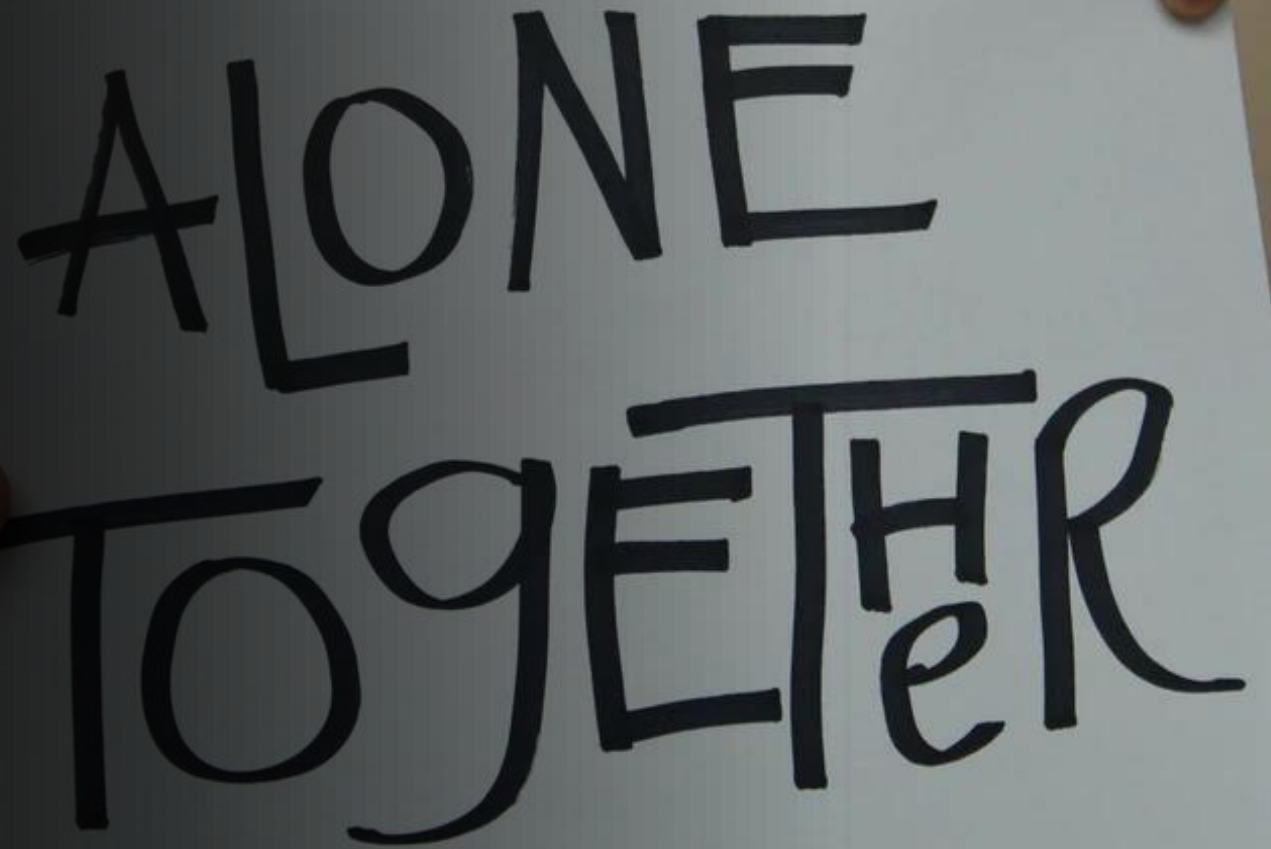 ALONE
TOgETHeR